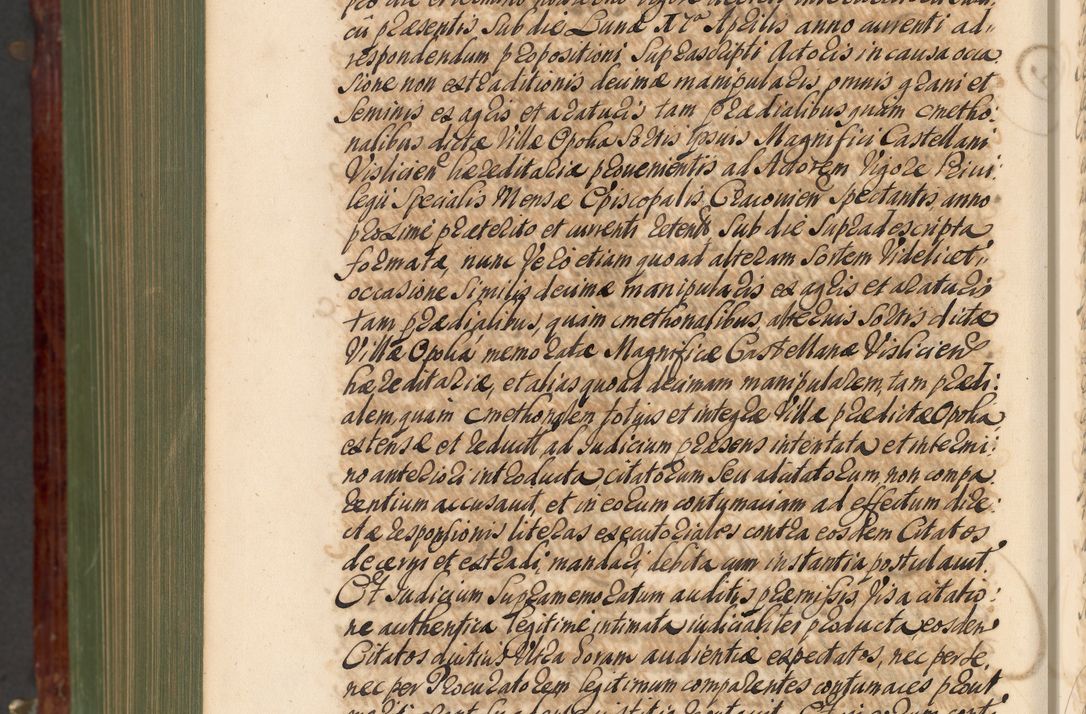 cũ præsentis, Sub die Lunæ 17ª Aprilis anno currenti ad-
respondendum propositioni Suprascripti Actoris in causa occa
sione non extraditionis decimæ manipularis omnis grani et
Seminis ex agris et araturis tam prædialibus quam cmetho:
nalibus dictæ Villæ Opoka Sortis ipsius Magnifici Castellani
Vislicien hæreditariæ prouenientis ad Actorem Vigore Priui:
legii Specialis Mensæ Episcopalis Cracouien Spectantis, anno
proximè præterito et currenti retent Sub die Supradescripta
formata, nunc Vero etiam quo ad alteram Sortem Videlicet
occasione Similis decimæ manipularis ex agris et araturis
tam prædialibus, quàm cmethonalibus alterius Sortis dictæ
Villæ Opoka memoratæ Magnificæ Castellanæ Vislicien
hæreditariæ, et alias quo ad decimam manipularem, tam prædi:
alem, quàm cmethonalem totius et integræ Villæ prædictæ Opoka
extensæ et reduct ad Iudicium præsens intentata et in termi:
no anteriori introducta citatorum Seu adcitatorum, non compa
rentium accusauit, et in eorum contumaciam ad effectum dire:
ctæ responsionis literas executoriales contra eosdem Citatos
decerni et extradi, mandari debita cum instantia postulauit.
Et Iudicium Supramemoratum auditis præmissis Visa citatio:
ne authentica legitimè intimata iudicialiter producta eosdem
Citatos diutius Vltra horam audientiæ expectatos, nec per Se,
nec per Procuratorem legitimum comparentes contumaces prout